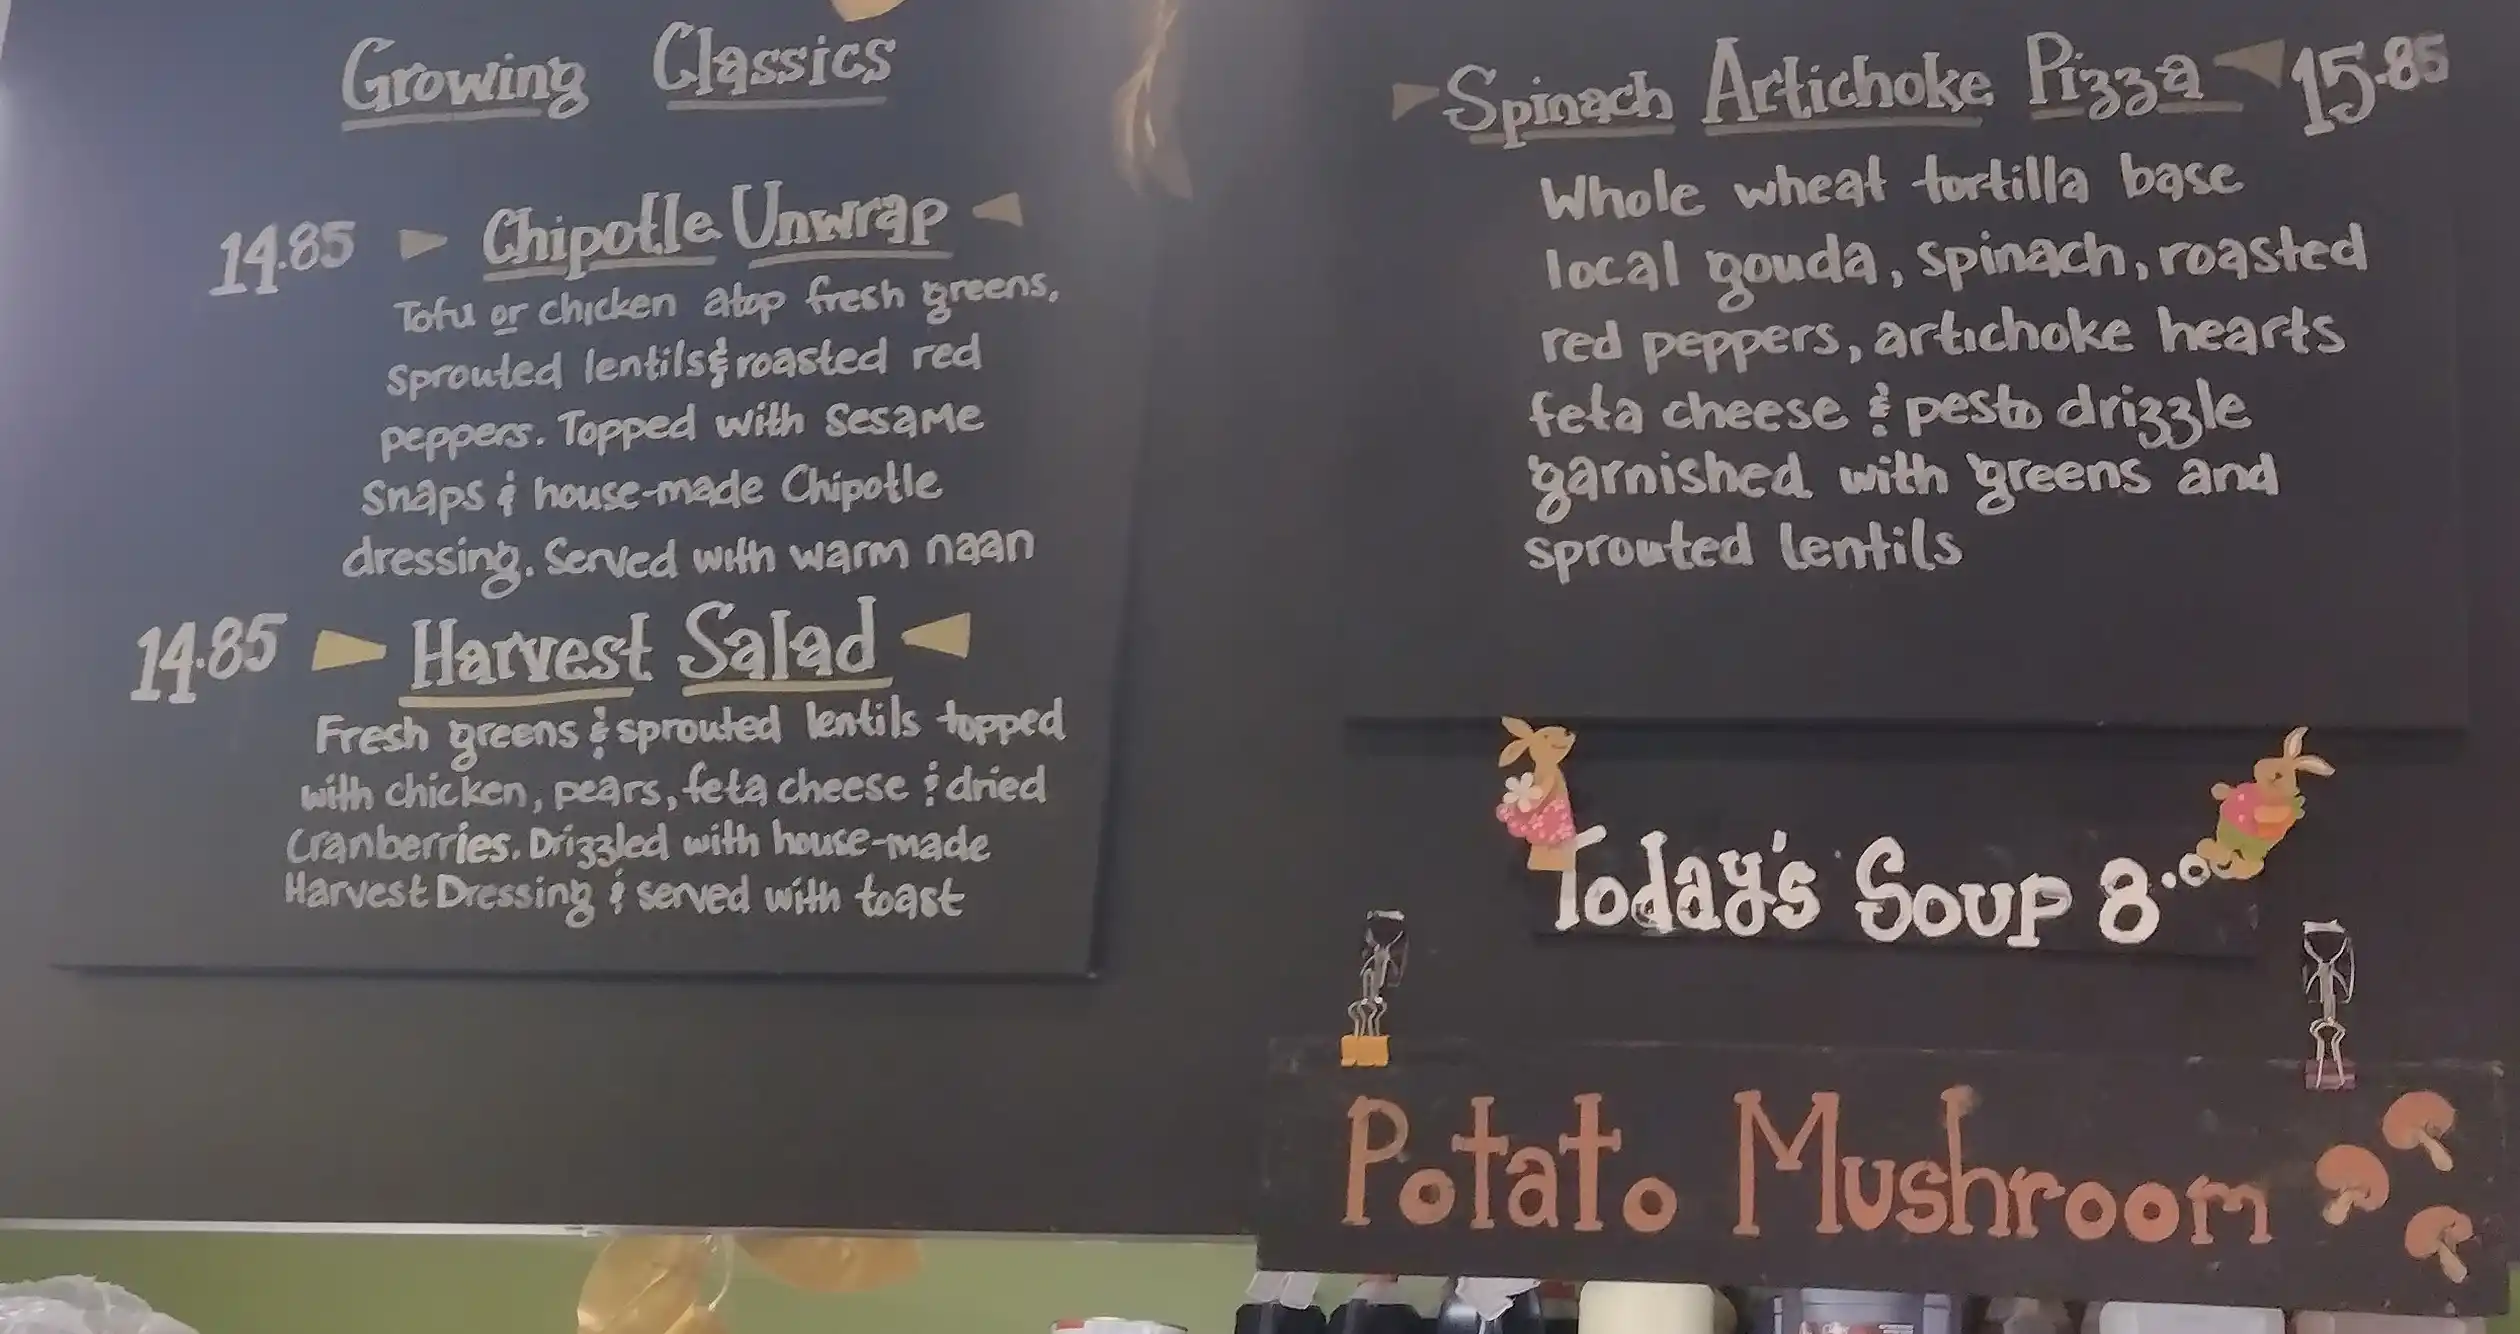 Growing Classics
14.85 Chipotle Unwrap
Tofu or chicken atop fresh greens,
sprouted lentils & roasted red
peppers. Topped with Sesame
Snaps & house-made Chipotle
dressing. Served with warm naan
14.85 Harvest Salad
Fresh greens & sprouted lentils topped
with chicken, pears, feta cheese & dried
Cranberries. Drizzled with house-made
Harvest Dressing & served with toast
Spinach Artichoke Pizza 15.85
Whole wheat tortilla base
local gouda, spinach, roasted
red peppers, artichoke hearts
feta cheese & pesto drizzle
garnished with greens and
sprouted lentils
Today's Soup 8.00
Potato Mushroom